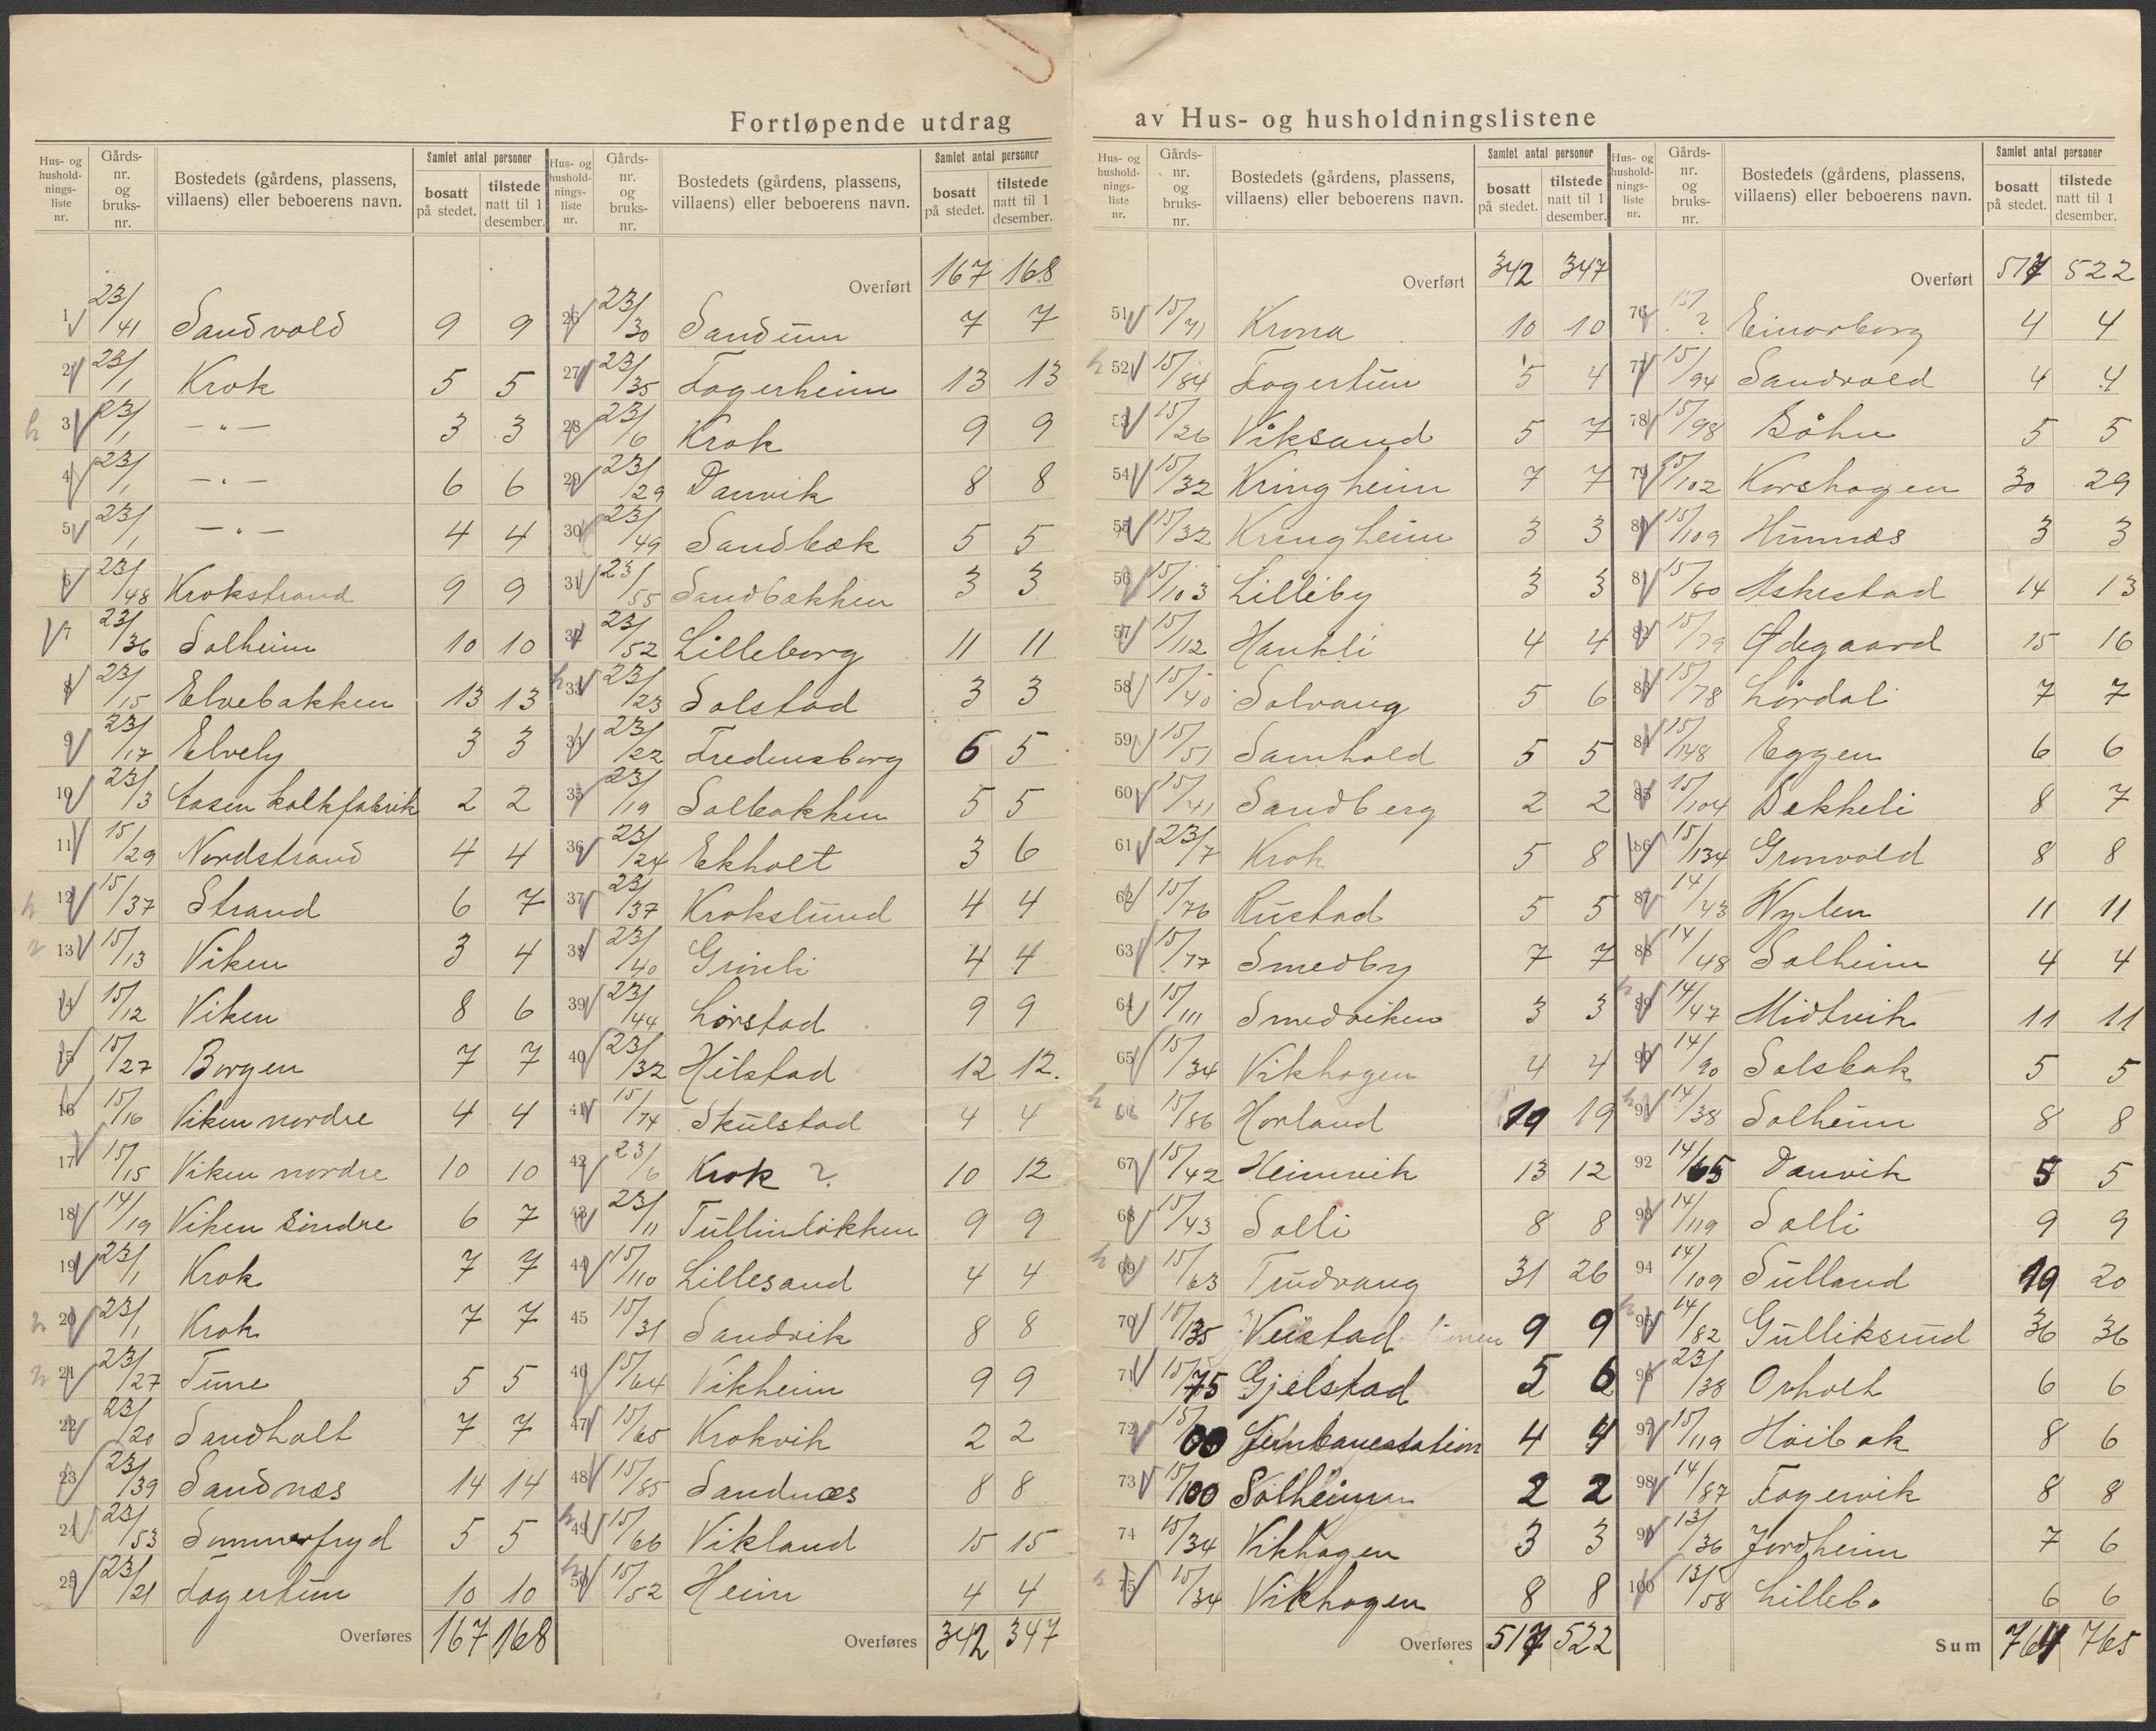 Fortløpende utdrag av Hus- og husholdningslistene
Hus- og husholdnings- liste nr. Gårds- nr. og bruks- nr. Bostedets (gårdens, plassens, villaens) eller beboerens navn. Samlet antal personer bosatt på stedet. tilstede natt til 1 desember.
1 23/41 Sandvold 9 9
2 23/1 Krok 5 5
3 23/1 — " — 3 3
4 23/1 — " — 6 6
5 23/1 — " — 4 4
6 23/48 Krokstrand 9 9
7 23/36 Solheim 10 10
8 23/15 Elvebakken 13 13
9 23/17 Elvely 3 3
10 23/3 Aasen kalkfabrik 2 2
11 15/29 Nordstrand 4 4
12 15/37 Strand 6 7
13 15/13 Viken 3 4
14 15/12 Viken 8 6
15 15/27 Borgen 7 7
16 15/16 Viken nordre 4 4
17 15/15 Viken nordre 10 10
18 14/19 Viken søndre 6 7
19 23/1 Krok 7 7
20 23/1 Krok 7 7
21 23/27 Tune 5 5
22 23/20 Sandholt 7 7
23 23/39 Sandnæs 14 14
24 23/53 Sommerfryd 5 5
25 23/21 Fagertun 10 10
Overføres 167 168
Hus- og husholdnings- liste nr. Gårds- nr. og bruks- nr. Bostedets (gårdens, plassens, villaens) eller beboerens navn. Samlet antal personer bosatt på stedet. tilstede natt til 1 desember.
Overført 167 168
26 23/30 Sandum 7 7
27 23/35 Fagerheim 13 13
28 23/6 Krok 9 9
29 23/29 Danvik 8 8
30 23/49 Sandbæk 5 5
31 23/55 Sandbakken 3 3
32 23/52 Lilleborg 11 11
33 23/23 Solstad 3 3
34 23/22 Fredensborg 6 5
35 23/19 Solbakken 5 5
36 23/24 Ekholt 3 6
37 23/37 Krokslund 4 4
38 23/40 Grønli 4 4
39 23/44 Lørstad 9 9
40 23/32 Hilstad 12 12.
41 15/74 Skulstad 4 4
42 23/6 Krok ? 10 12
43 23/11 Tullinløkken 9 9
44 15/110 Lillesand 4 4
45 15/31 Sandvik 8 8
46 15/64 Vikheim 9 9
47 15/65 Krokvik 2 2
48 15/85 Sandnæs 8 8
49 15/66 Vikland 15 15
50 15/52 Heim 4 4
Overføres 342 347
Hus- og husholdnings- liste nr. Gårds- nr. og bruks- nr. Bostedets (gårdens, plassens, villaens) eller beboerens navn. Samlet antal personer bosatt på stedet. tilstede natt til 1 desember.
Overført 342 347
51 15/71 Krona 10 10
52 15/84 Fagertun 5 4
53 15/26 Viksand 5 7
54 15/32 Kringheim 7 7
55 15/32 Kringheim 3 3
56 15/103 Lilleby 3 3
57 15/112 Haukli 4 4
58 15/40 Solvang 5 6
59 15/51 Samhold 5 5
60 15/41 Sandberg 2 2
61 23/7 Krok 5 8
62 15/76 Rustad 5 5
63 15/77 Smedby 7 7
64 15/111 Smedviken 3 3
65 15/34 Vikhagen 4 4
66 15/86 Horland 19 19
67 15/42 Heimvik 13 12
68 15/43 Solli 8 8
69 15/63 Trudvang 31 26
70 15/35 Veistad 9 9
71 15/75 Gjelstad 5 6
72 15/00 Jernbanestation 4 4
73 15/100 Solheim 2 2
74 15/34 Vikhagen 3 3
75 15/34 Vikhagen 8 8
Overføres 517 522
Hus- og husholdnings- liste nr. Gårds- nr. og bruks- nr. Bostedets (gårdens, plassens, villaens) eller beboerens navn. Samlet antal personer bosatt på stedet. tilstede natt til 1 desember.
Overført 517 522
76 15/? Einarborg 4 4
77 15/94 Sandvold 4 4
78 15/98 Bøhn 5 5
79 15/102 Korshagen 30 29
80 15/109 Humnæs 3 3
81 15/80 Askestad 14 13
82 15/79 Ødegaard 15 16
83 15/78 Lørdali 7 7
84 15/148 Eggen 6 6
85 15/104 Bekkeli 8 7
86 15/134 Grønvold 8 8
87 14/43 Nylen 11 11
88 14/48 Solheim 4 4
89 14/47 Midtvik 11 11
90 14/90 Solsbak 5 5
91 14/38 Solheim 8 8
92 14/65 Danvik 5 5
93 14/119 Solli 9 9
94 14/109 Sulland 19 20
95 14/82 Gulliksrud 36 36
96 23/38 Orholt 6 6
97 15/119 Høibak 8 6
98 14/87 Fagervik 8 8
99 13/36 Jordheim 7 6
100 13/58 Lillebo 6 6
Sum 764 765